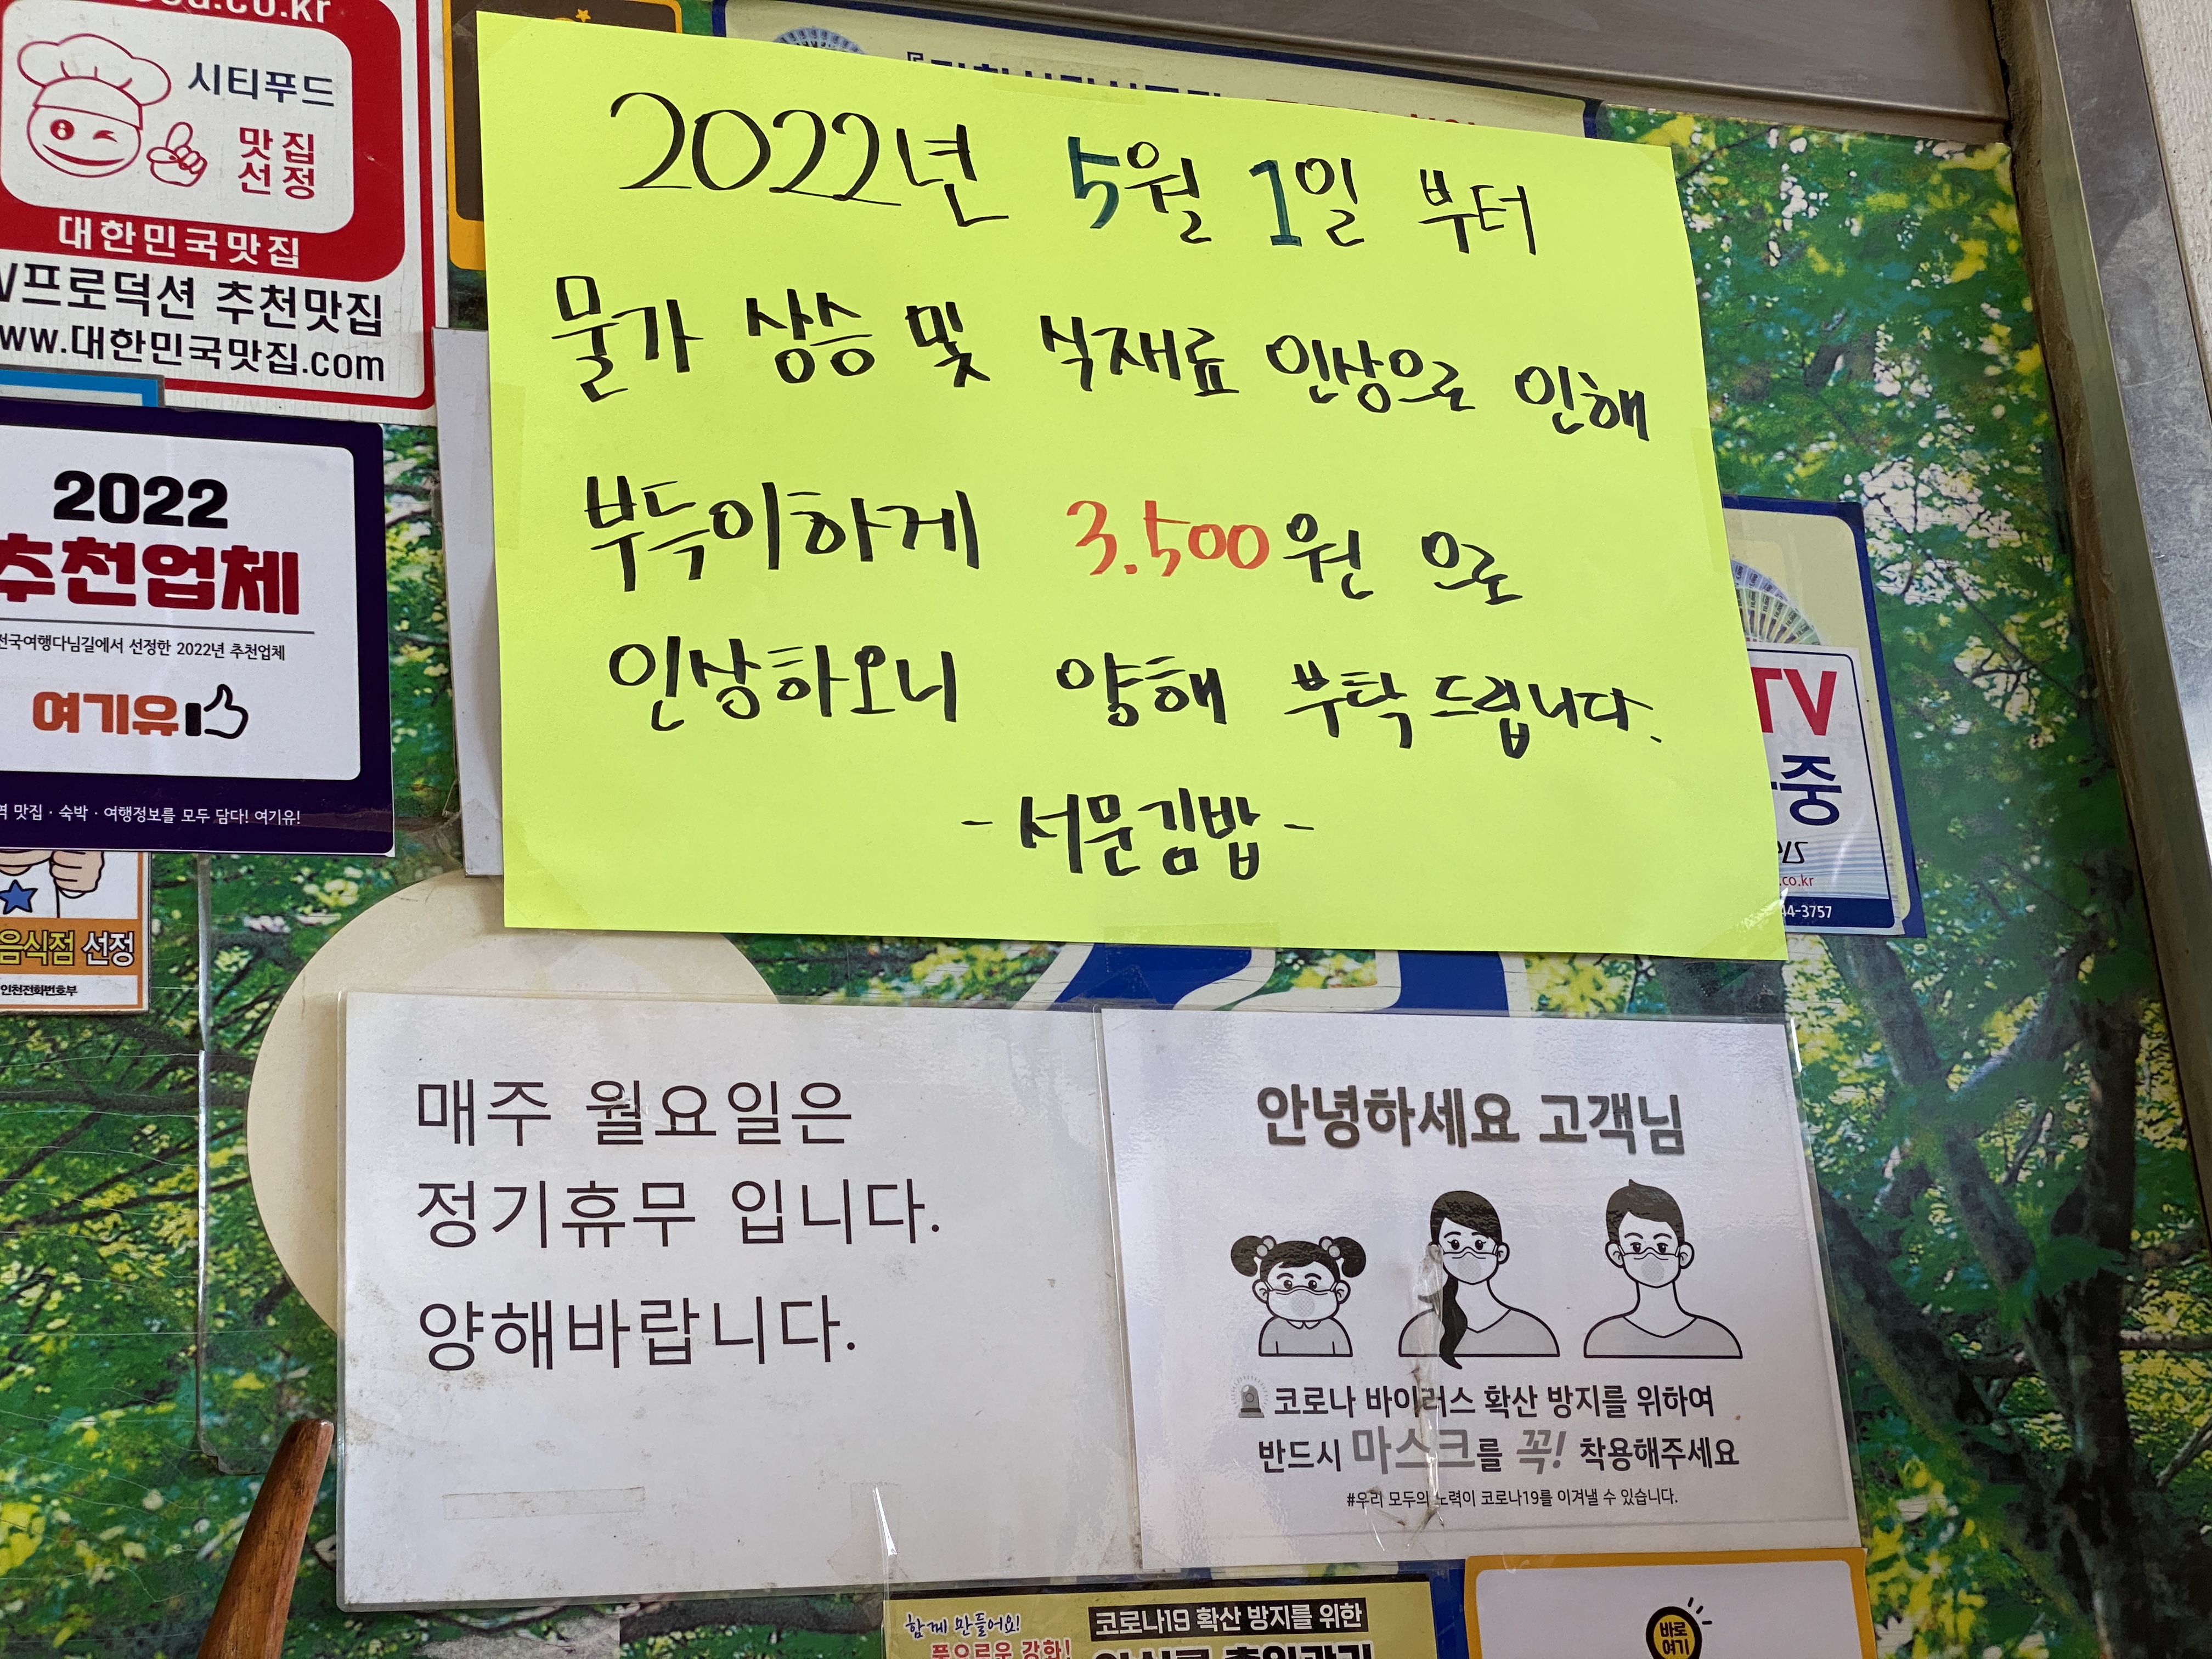 시티푸드
맛집
선정
대한민국맛집
프로덕션 추천맛집
대한민국맛집.com
2022
추천업체
전국여행다님길에서 선정한 2022년 추천업체
여기유
맛집 · 숙박 · 여행정보를 모두 담다! 여기유!
음식점 선정
인천전화번호부
2022년 5월 1일 부터
물가 상승 및 식재료 인상으로 인해
부득이하게 3.500원 으로
인상하오니 양해 부탁드립니다.
- 서문김밥 -
TV
중
.co.kr
44-3757
매주 월요일은
정기휴무 입니다.
양해바랍니다.
안녕하세요 고객님
코로나 바이러스 확산 방지를 위하여
반드시 마스크를 꼭! 착용해주세요
#우리 모두의 노력이 코로나19를 이겨낼 수 있습니다.
함께 만들어요!
풍요로운 강화!
코로나19 확산 방지를 위한
바로
여기